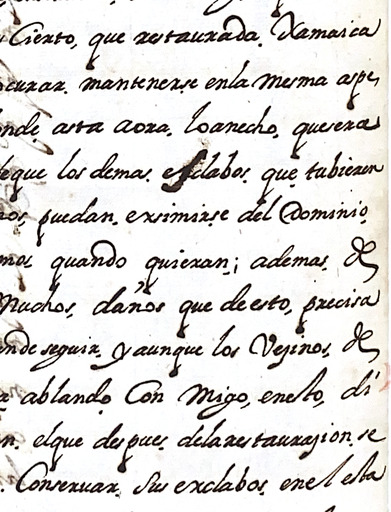 Cierto, que restaurada. Xamaica
ocurar. mantenerse enla mesma aspe,
onde. asta aora. loanecho, quesera
deque los demas. esclabos. que. tubieren
nos, puedan. exsimirse del Dominio.
mos quando quieran; ademas. de
Muchos, daños que deesto, precisa
ande seguir. yaunque los Vejinos. de
ablando Con Migo, enesto, di
n. elque despues. dela restaurazion. se
. Conseruar. Sus exclabos. enel esta